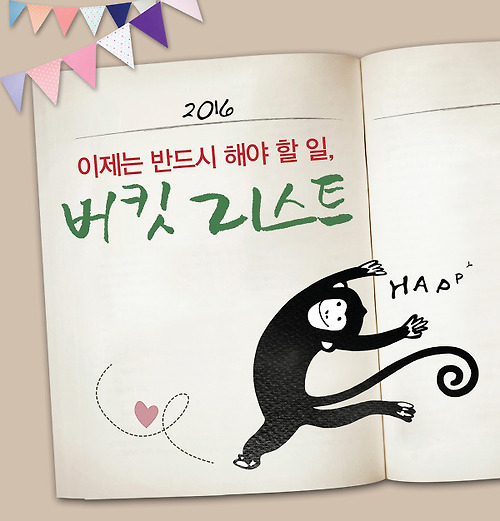 2016
이제는 반드시 해야 할 일,
버킷 리스트
HAPPY